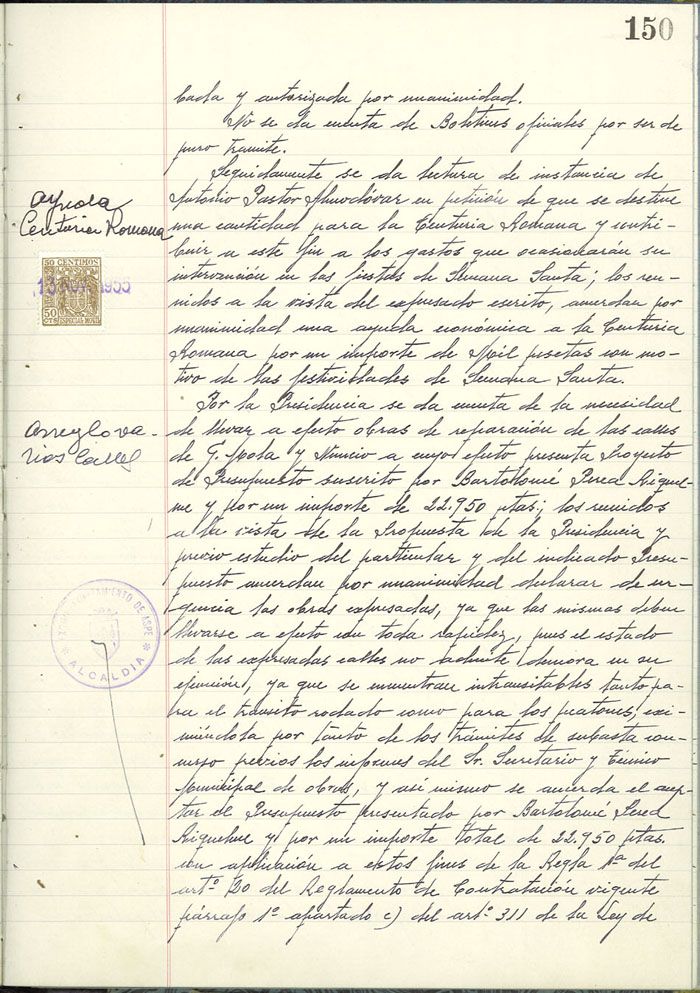 150
bada y autorizada por unanimidad.
No se da cuenta de Boletines oficiales por ser de
puro tramite.
Seguidamente se da lectura de instancia de
Antonio Pastor Almodóvar en petición de que se destine
una cantidad para la Centuria Romana y contri-
buir a este fin a los gastos que ocasionarán su
intervención en las fiestas de Semana Santa; los reu-
nidos a la vista del expresado escrito, acuerdan por
unanimidad una ayuda económica a la Centuria
Romana por un importe de Mil pesetas con mo-
tivo de las festividades de Semana Santa.
Por la Presidencia se da cuenta de la necesidad
de llevar a efecto obras de reparación de las calles
de G. Mola y Nuncio a cuyo efecto presenta Proyecto
de Presupuesto suscrito por Bartolomé Perea Riquel-
me y por un importe de 22.950 ptas; los reunidos
a la vista de la Propuesta de la Presidencia y
previo estudio del particular y del indicado Presu-
puesto acuerdan por unanimidad declarar de ur-
gencia las obras expresadas, ya que las mismas deben
llevarse a efecto con toda rapidez, pues el estado
de las expresadas calles no admite demora en su
ejecución, ya que se encuentran intransitables tanto pa-
ra el transito rodado como para los peatones, exi-
miéndola por tanto de los trámites de subasta con-
curso previos los informes del Sr. Secretario y Técnico
Municipal de obras, y asi mismo se acuerda el acep-
tar el Presupuesto presentado por Bartolomé Perea
Riquelme y por un importe total de 22.950 ptas.
con aplicación a estos fines de la Regla 1ª del
artº 120 del Reglamento de Contratación vigente
párrafo 1º apartado c) del artº 311 de la Ley de
ayuda
Centuria Romana
50 CENTIMOS
13 NOV. 1955
50 CTS
ESPECIAL MOVIL
Arreglo va-
rias Calles
AYUNTAMIENTO DE ASPE
ALCALDIA